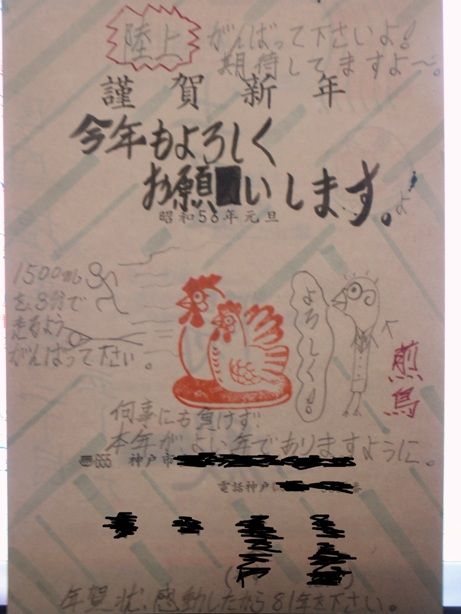 陸上 がんばって下さいよ!
期待してますよ〜。
謹賀新年
今年もよろしく
お願いします。
昭和56年元旦
1500mを
3分で
走るよう
がんばって下さい。
よろしく!
煎鳥
何事にも負けず!
本年がよい年でありますように。
〠655 神戸市
電話神戸
年賀状、感動したから81年も下さい。